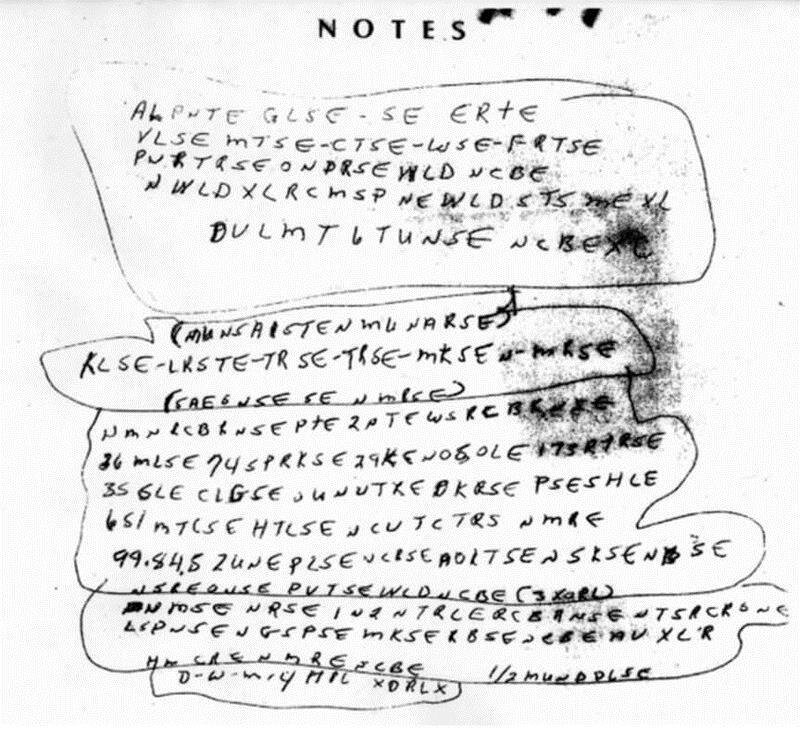 NOTES
ALPNTE GLSE - SE ERTE
VLSE MTSE-CTSE-WSE-FRTSE
PVRTRSE ONDRSE WLD NCBE
NWLDXLRCMSP NEWLDSTS ME XL
DULMT6TUNSE NCBEXC
(MUNSAISTEN MUNARSE)
KLSE-LRSTE-TRSE-TRSE-MKSEN-MRSE
(SAEGNSE SE N MRSE)
NMNRCBRNSE PTE2PTEWSRCBRNSE
36 MLSE 74SPRKSE 29KENOSOLE 173RTRSE
35 GLE CLGSE UNUTXE DKRSE PSESHLE
651 MTCSE HTLSE NCUTCTRS NMRE
99.84.5 2UNE PLSE NCRSE AOLTSE NSKSENBSE
NSREONSE PUTSEWLD NCBE (3XORL)
NMSE NRSE IN2NTRLERCBRNSE NTSRCRONE
LSPNSE NGSPSE MKSERBSE NCBE AUXL'R
HM CRE NMRE NCBE 1/2 MUNDDLSE
D-W-M-4 MIL XDRLX